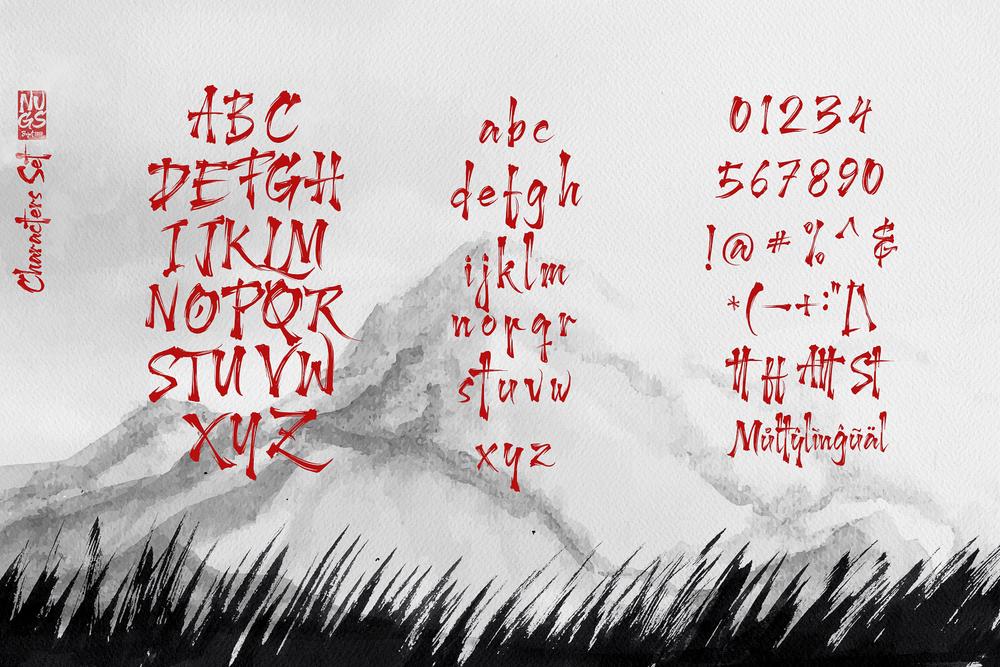 NU
GS
Characters Set
ABC
DEFGH
IJKLM
NOPQR
STUVW
XYZ
abc
defgh
ijklm
nopqr
stuvw
xyz
01234
567890
!@#%^&
*(—+:"[]
tt ff Att St